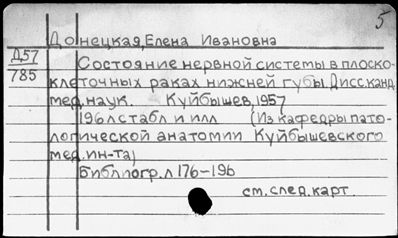 5
Донецкая, Елена Ивановна
Д57
785
Состояние нервной системы в плоско-
клеточных раках нижней губы. Дисс. канд.
мед. наук. Куйбышев, 1957
196 л с табл и илл (Из кафедры пато-
логической анатомии Куйбышевского
мед. ин-та)
Библиогр. л 176-196
см. след. карт.